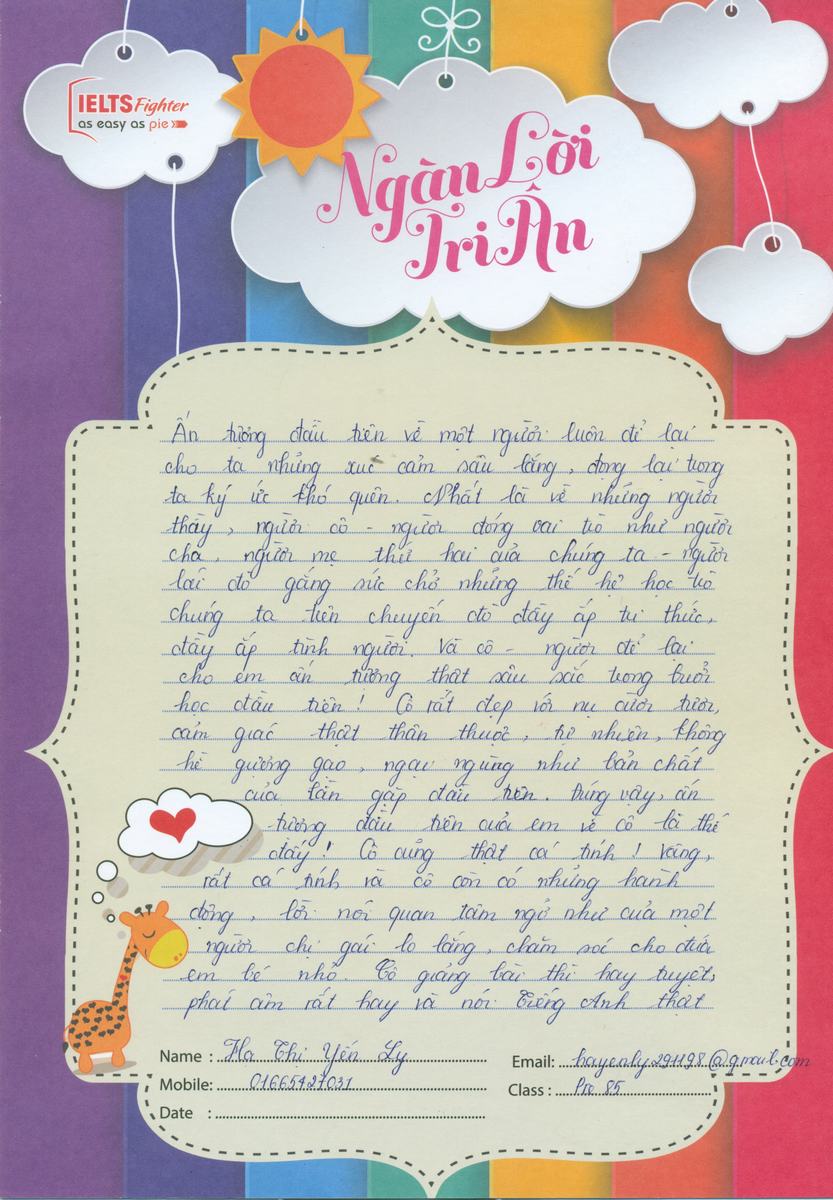 IELTS Fighter
as easy as pie
Ngàn Lời
Tri Ân
Ấn tượng đầu tiên về một người luôn để lại
cho ta những xúc cảm sâu lắng, đọng lại trong
ta ký ức khó quên. Nhất là về những người
thầy, người cô - người đóng vai trò như người
cha, người mẹ thứ hai của chúng ta - người
lái đò gắng sức chở những thế hệ học trò
chúng ta trên chuyến đò đầy ắp tri thức,
đầy ắp tình người. Và cô - người để lại
cho em ấn tượng thật sâu sắc trong buổi
học đầu tiên! Cô rất đẹp với nụ cười tươi,
cảm giác thật thân thuộc, tự nhiên, không
hề gượng gạo, ngại ngùng như bản chất
của lần gặp đầu tiên. Đúng vậy, ấn
tượng đầu tiên của em về cô là thế
đấy! Cô cũng thật cá tính! Vâng,
rất cá tính và cô còn có những hành
động, lời nói quan tâm ngỡ như của một
người chị gái lo lắng, chăm sóc cho đứa
em bé nhỏ. Cô giảng bài thì hay tuyệt,
phát âm rất hay và nói Tiếng Anh thật
Name : Hạ Thị Yến Ly
Email: hayenly291198@gmail.com
Mobile: 01665427031
Class : Pre 85
Date :